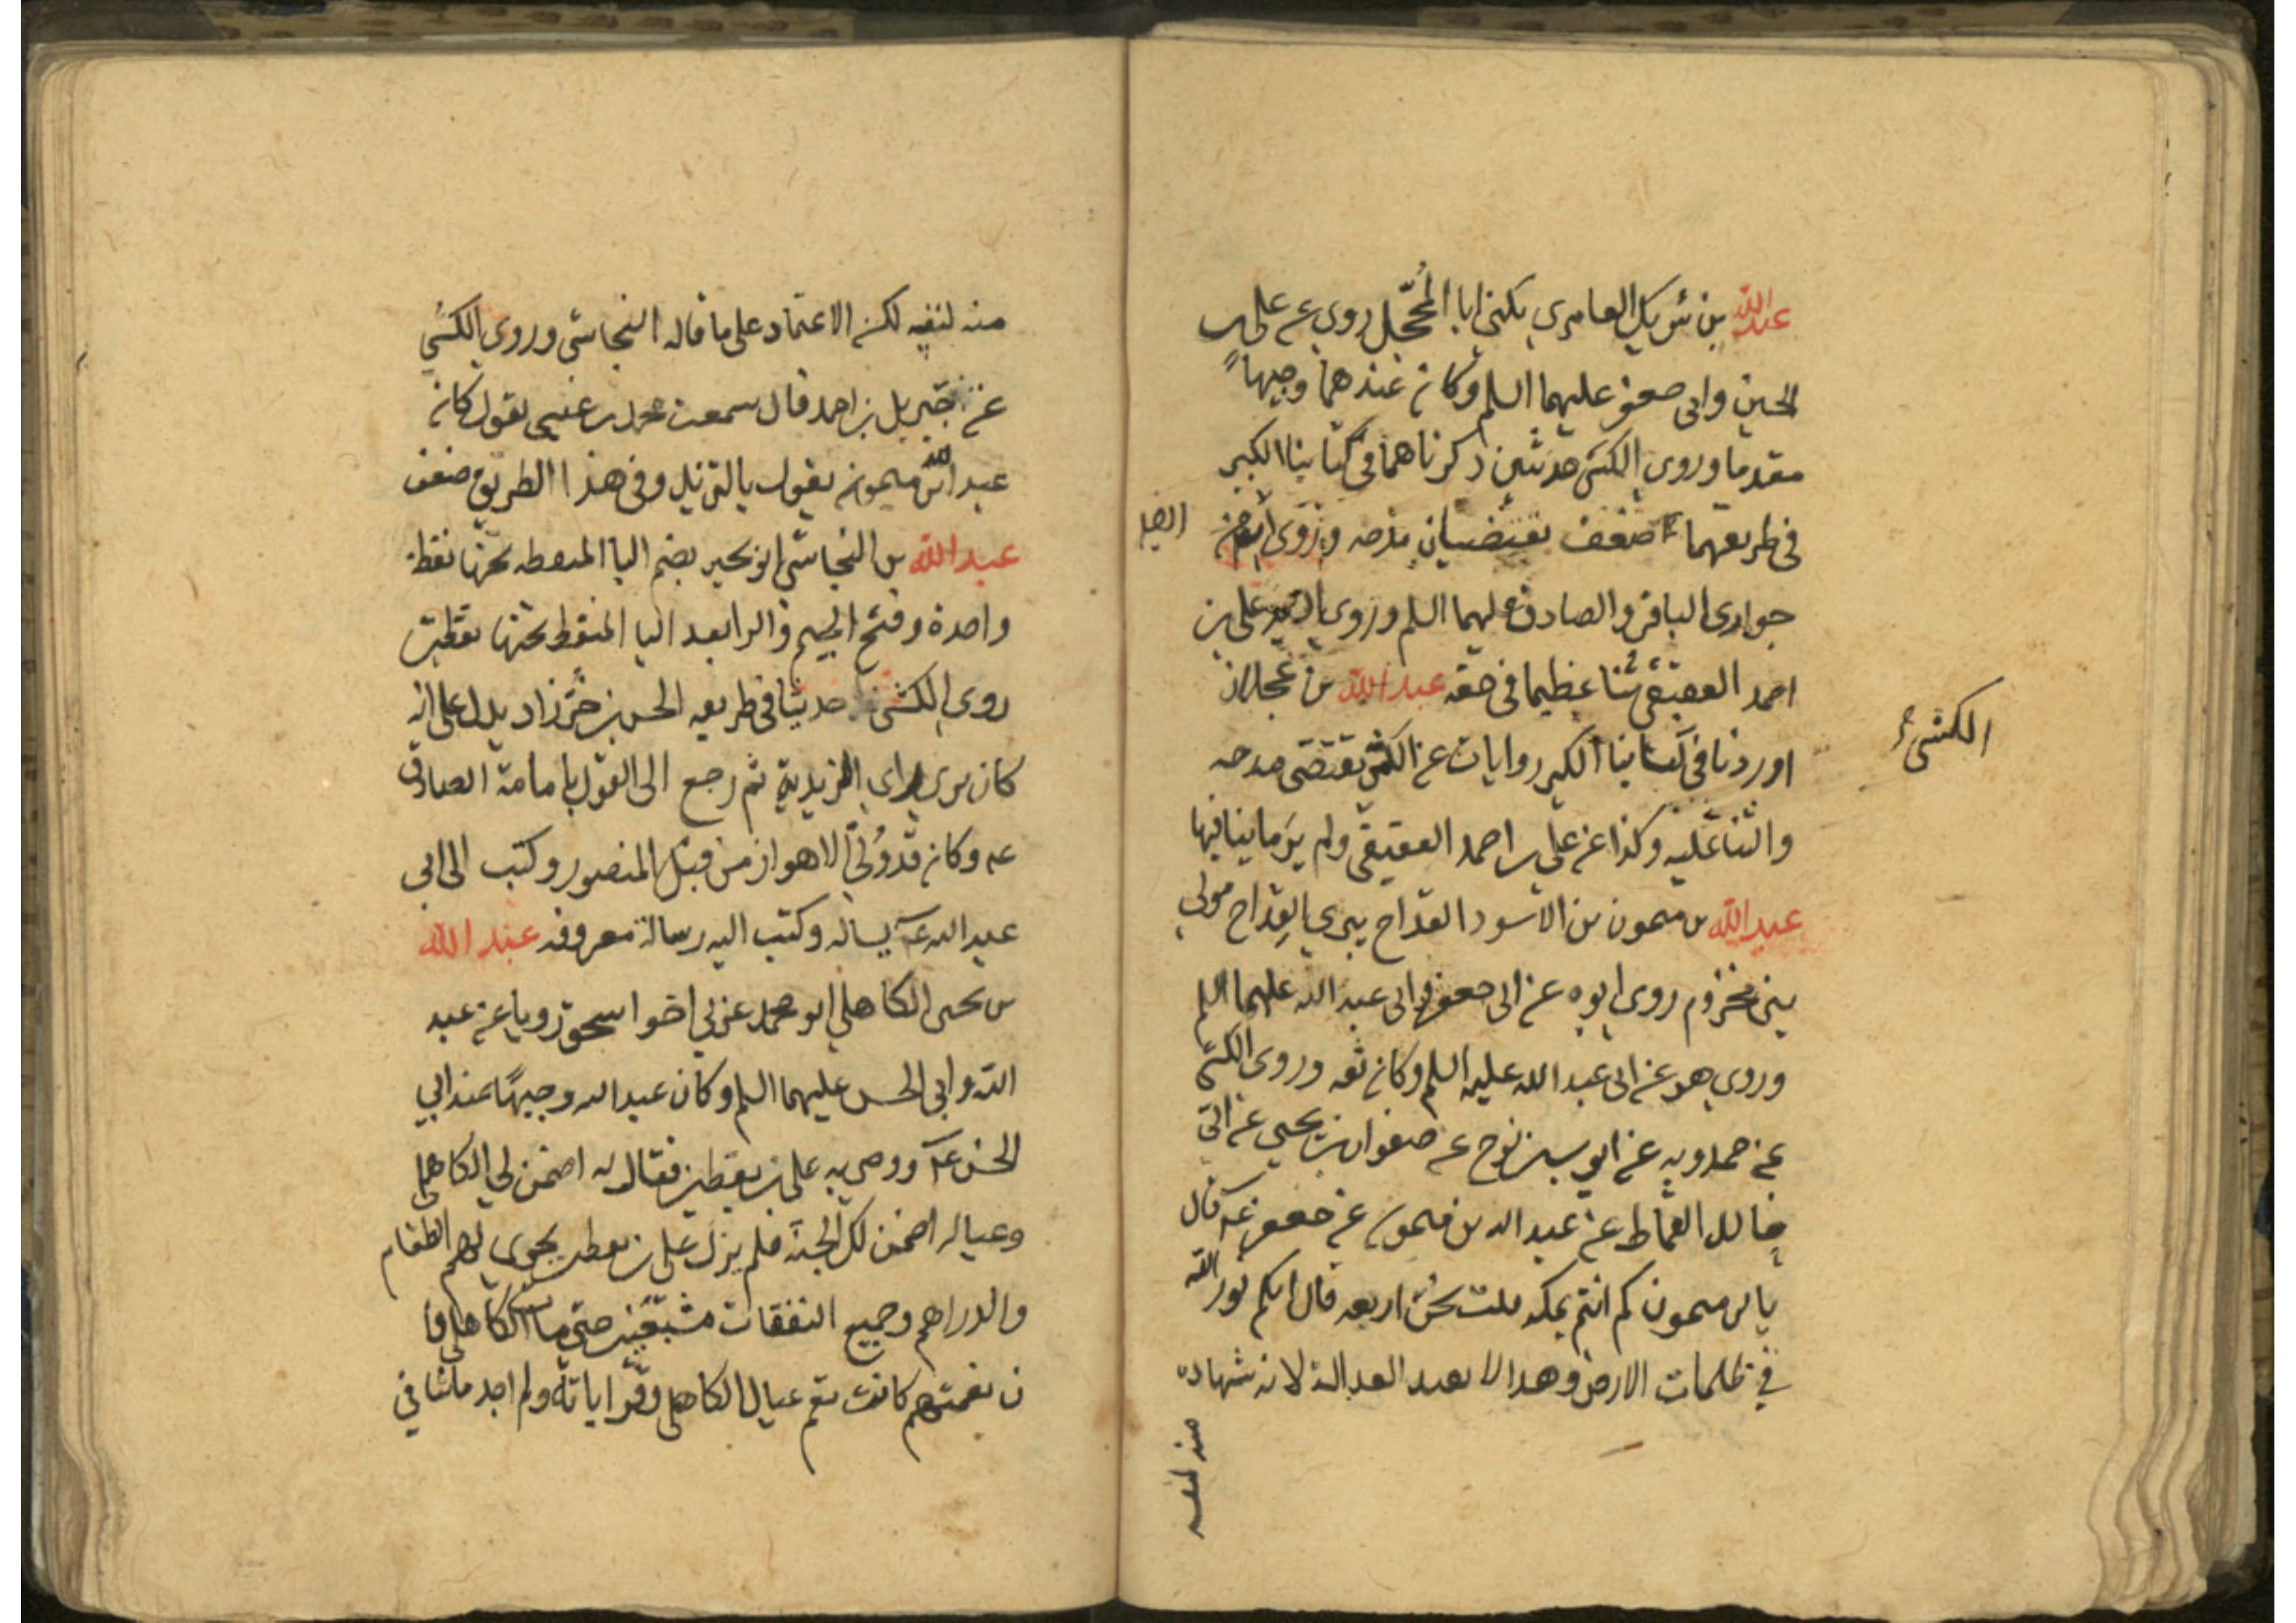 عبد الله بن شريك العامري يكنى ابا المحجل روى عن علي بن
الحسين وابي جعفر عليهما السلم وكان عندهما وجيها
مقدما وروى الكشي حديثين ذكرناهما في كتابنا الكبير
في طريقهما ضعف يقتضيان مدحه وروى ايضا انه من
ايضا
حواري الباقر والصادق عليهما السلم وروى السيد علي بن
احمد العقيقي ثنا عظيما في حقه عبد الله بن عجلان
اوردنا في كتابنا الكبير روايات عن الكشي تقتضى مدحه
الكشي
والثنا عليه وكذا عن علي بن احمد العقيقي ولم ير ما ينافيها
عبد الله بن ميمون بن الاسود القداح يبري القداح مولى
بني مخزوم روى ابوه عن ابي جعفر وابي عبد الله عليهما السلم
وروى هو عن ابي عبد الله عليه السلم وكان ثقه وروى الكشي
عن حمدويه عن ايوب بن نوح عن صفوان بن يحيى عن ابي
خالد القماط عن عبد الله بن ميمون عن ابي جعفر عه قال
يا بن ميمون كم انتم بمكه قلت نحن اربعه قال انكم نور الله
في ظلمات الارض وهذا لا يفيد العدالة لانه شهاده
منه لنفسه
منه لنفسه لكن الاعتماد على ما قاله النجاشي وروى الكشي
عن جبريل بن احمد قال سمعت محمد بن عيسى يقول كان
عبد الله بن ميمون يقول بالتزيد وفي هذا الطريق ضعف
عبد الله بن النجاشي ابو بجير بضم البا المنقطه تحتها نقطة
واحدة وفتح الجيم والرا بعد اليا المنقطه تحتها نقطتين
روى الكشي حديثا في طريقه الحسن بن خرزاد يدل على انه
كان يرى راي الزيدية ثم رجع الى القول بامامة الصادق
عه وكان قد ولي الاهواز من قبل المنصور وكتب الى ابي
عبد الله عه يساله وكتب اليه رسالة معروفه عبد الله
بن يحيى الكاهلي ابو محمد عربي اخو اسحق رويا عن عبد
الله وابي الحسن عليهما السلم وكان عبد الله وجيها عند ابي
الحسن عه ووصى به علي بن يقطين فقال له اضمن لي الكاهلي
وعياله اضمن لك الجنة فلم يزل علي بن يقطين يجري لهم الطعام
والدراهم وجميع النفقات مستغنين حتى مات الكاهلي وا
ن نعمتهم كانت تعم عيال الكاهلي وقراباته ولم اجد ما ينافي